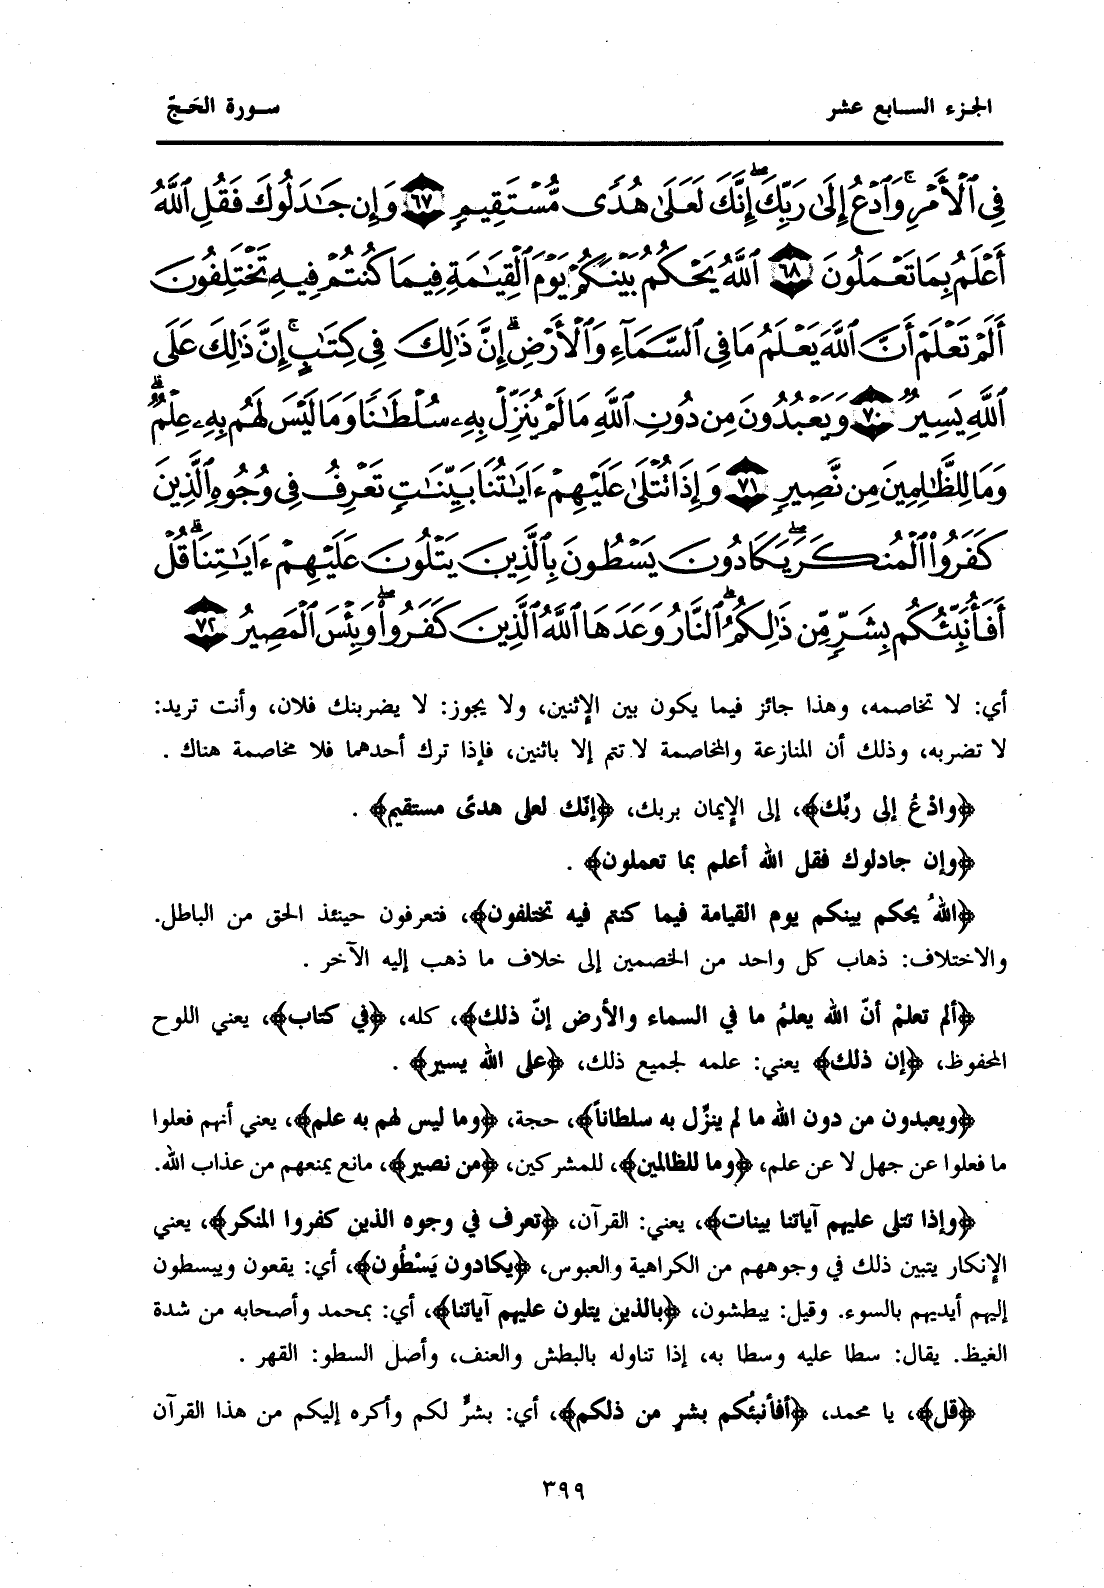 الجزء السابع عشر
سورة الحَجّ
فِى ٱلْأَمْرِ ۚ وَٱدْعُ إِلَىٰ رَبِّكَ ۖ إِنَّكَ لَعَلَىٰ هُدًى مُّسْتَقِيمٍ ٦٧ وَإِن جَـٰدَلُوكَ فَقُلِ ٱللَّهُ
أَعْلَمُ بِمَا تَعْمَلُونَ ٦٨ ٱللَّهُ يَحْكُمُ بَيْنَكُمْ يَوْمَ ٱلْقِيَـٰمَةِ فِيمَا كُنتُمْ فِيهِ تَخْتَلِفُونَ
أَلَمْ تَعْلَمْ أَنَّ ٱللَّهَ يَعْلَمُ مَا فِى ٱلسَّمَآءِ وَٱلْأَرْضِ ۗ إِنَّ ذَٰلِكَ فِى كِتَـٰبٍ ۚ إِنَّ ذَٰلِكَ عَلَى
ٱللَّهِ يَسِيرٌ ٧٠ وَيَعْبُدُونَ مِن دُونِ ٱللَّهِ مَا لَمْ يُنَزِّلْ بِهِۦ سُلْطَـٰنًا وَمَا لَيْسَ لَهُم بِهِۦ عِلْمٌ ۗ
وَمَا لِلظَّـٰلِمِينَ مِن نَّصِيرٍ ٧١ وَإِذَا تُتْلَىٰ عَلَيْهِمْ ءَايَـٰتُنَا بَيِّنَـٰتٍ تَعْرِفُ فِى وُجُوهِ ٱلَّذِينَ
كَفَرُوا۟ ٱلْمُنكَرَ ۖ يَكَادُونَ يَسْطُونَ بِٱلَّذِينَ يَتْلُونَ عَلَيْهِمْ ءَايَـٰتِنَا ۗ قُلْ
أَفَأُنَبِّئُكُم بِشَرٍّ مِّن ذَٰلِكُمُ ۗ ٱلنَّارُ وَعَدَهَا ٱللَّهُ ٱلَّذِينَ كَفَرُوا۟ ۖ وَبِئْسَ ٱلْمَصِيرُ ٧٢
أي: لا تخاصمه، وهذا جائز فيما يكون بين الإثنين، ولا يجوز: لا يضربنك فلان، وأنت تريد:
لا تضربه، وذلك أن المنازعة والمخاصمة لا تتم إلا باثنين، فإذا ترك أحدهما فلا مخاصمة هناك .
﴿وادْعُ إلى ربِّك﴾، إلى الإيمان بربك، ﴿إنّك لعلى هدىً مستقيم﴾ .
﴿وإن جادلوك فقل الله أعلم بما تعملون﴾ .
﴿اللهُ يحكم بينكم يوم القيامة فيما كنتم فيه تختلفون﴾، فتعرفون حينئذ الحق من الباطل.
والاختلاف: ذهاب كل واحد من الخصمين إلى خلاف ما ذهب إليه الآخر .
﴿ألم تعلمْ أنّ الله يعلمُ ما في السماء والأرض إنّ ذلك﴾، كله، ﴿في كتاب﴾، يعني اللوح
المحفوظ، ﴿إن ذلك﴾ يعني: علمه لجميع ذلك، ﴿على الله يسير﴾ .
﴿ويعبدون من دون الله ما لم ينزِّل به سلطاناً﴾، حجة، ﴿وما ليس لهم به علم﴾، يعني أنهم فعلوا
ما فعلوا عن جهل لا عن علم، ﴿وما للظالمين﴾، للمشركين، ﴿من نصير﴾، مانع يمنعهم من عذاب الله.
﴿وإذا تتلى عليهم آياتنا بينات﴾، يعني: القرآن، ﴿تعرف في وجوه الذين كفروا المنكر﴾، يعني
الإنكار يتبين ذلك في وجوههم من الكراهية والعبوس، ﴿يكادون يَسْطُون﴾، أي: يقعون ويبسطون
إليهم أيديهم بالسوء. وقيل: يبطشون، ﴿بالذين يتلون عليهم آياتنا﴾، أي: بمحمد وأصحابه من شدة
الغيظ. يقال: سطا عليه وسطا به، إذا تناوله بالبطش والعنف، وأصل السطو: القهر .
﴿قل﴾، يا محمد، ﴿أفأنبئُكم بشرٍ من ذلكم﴾، أي: بشرٍّ لكم وأكره إليكم من هذا القرآن
٣٩٩